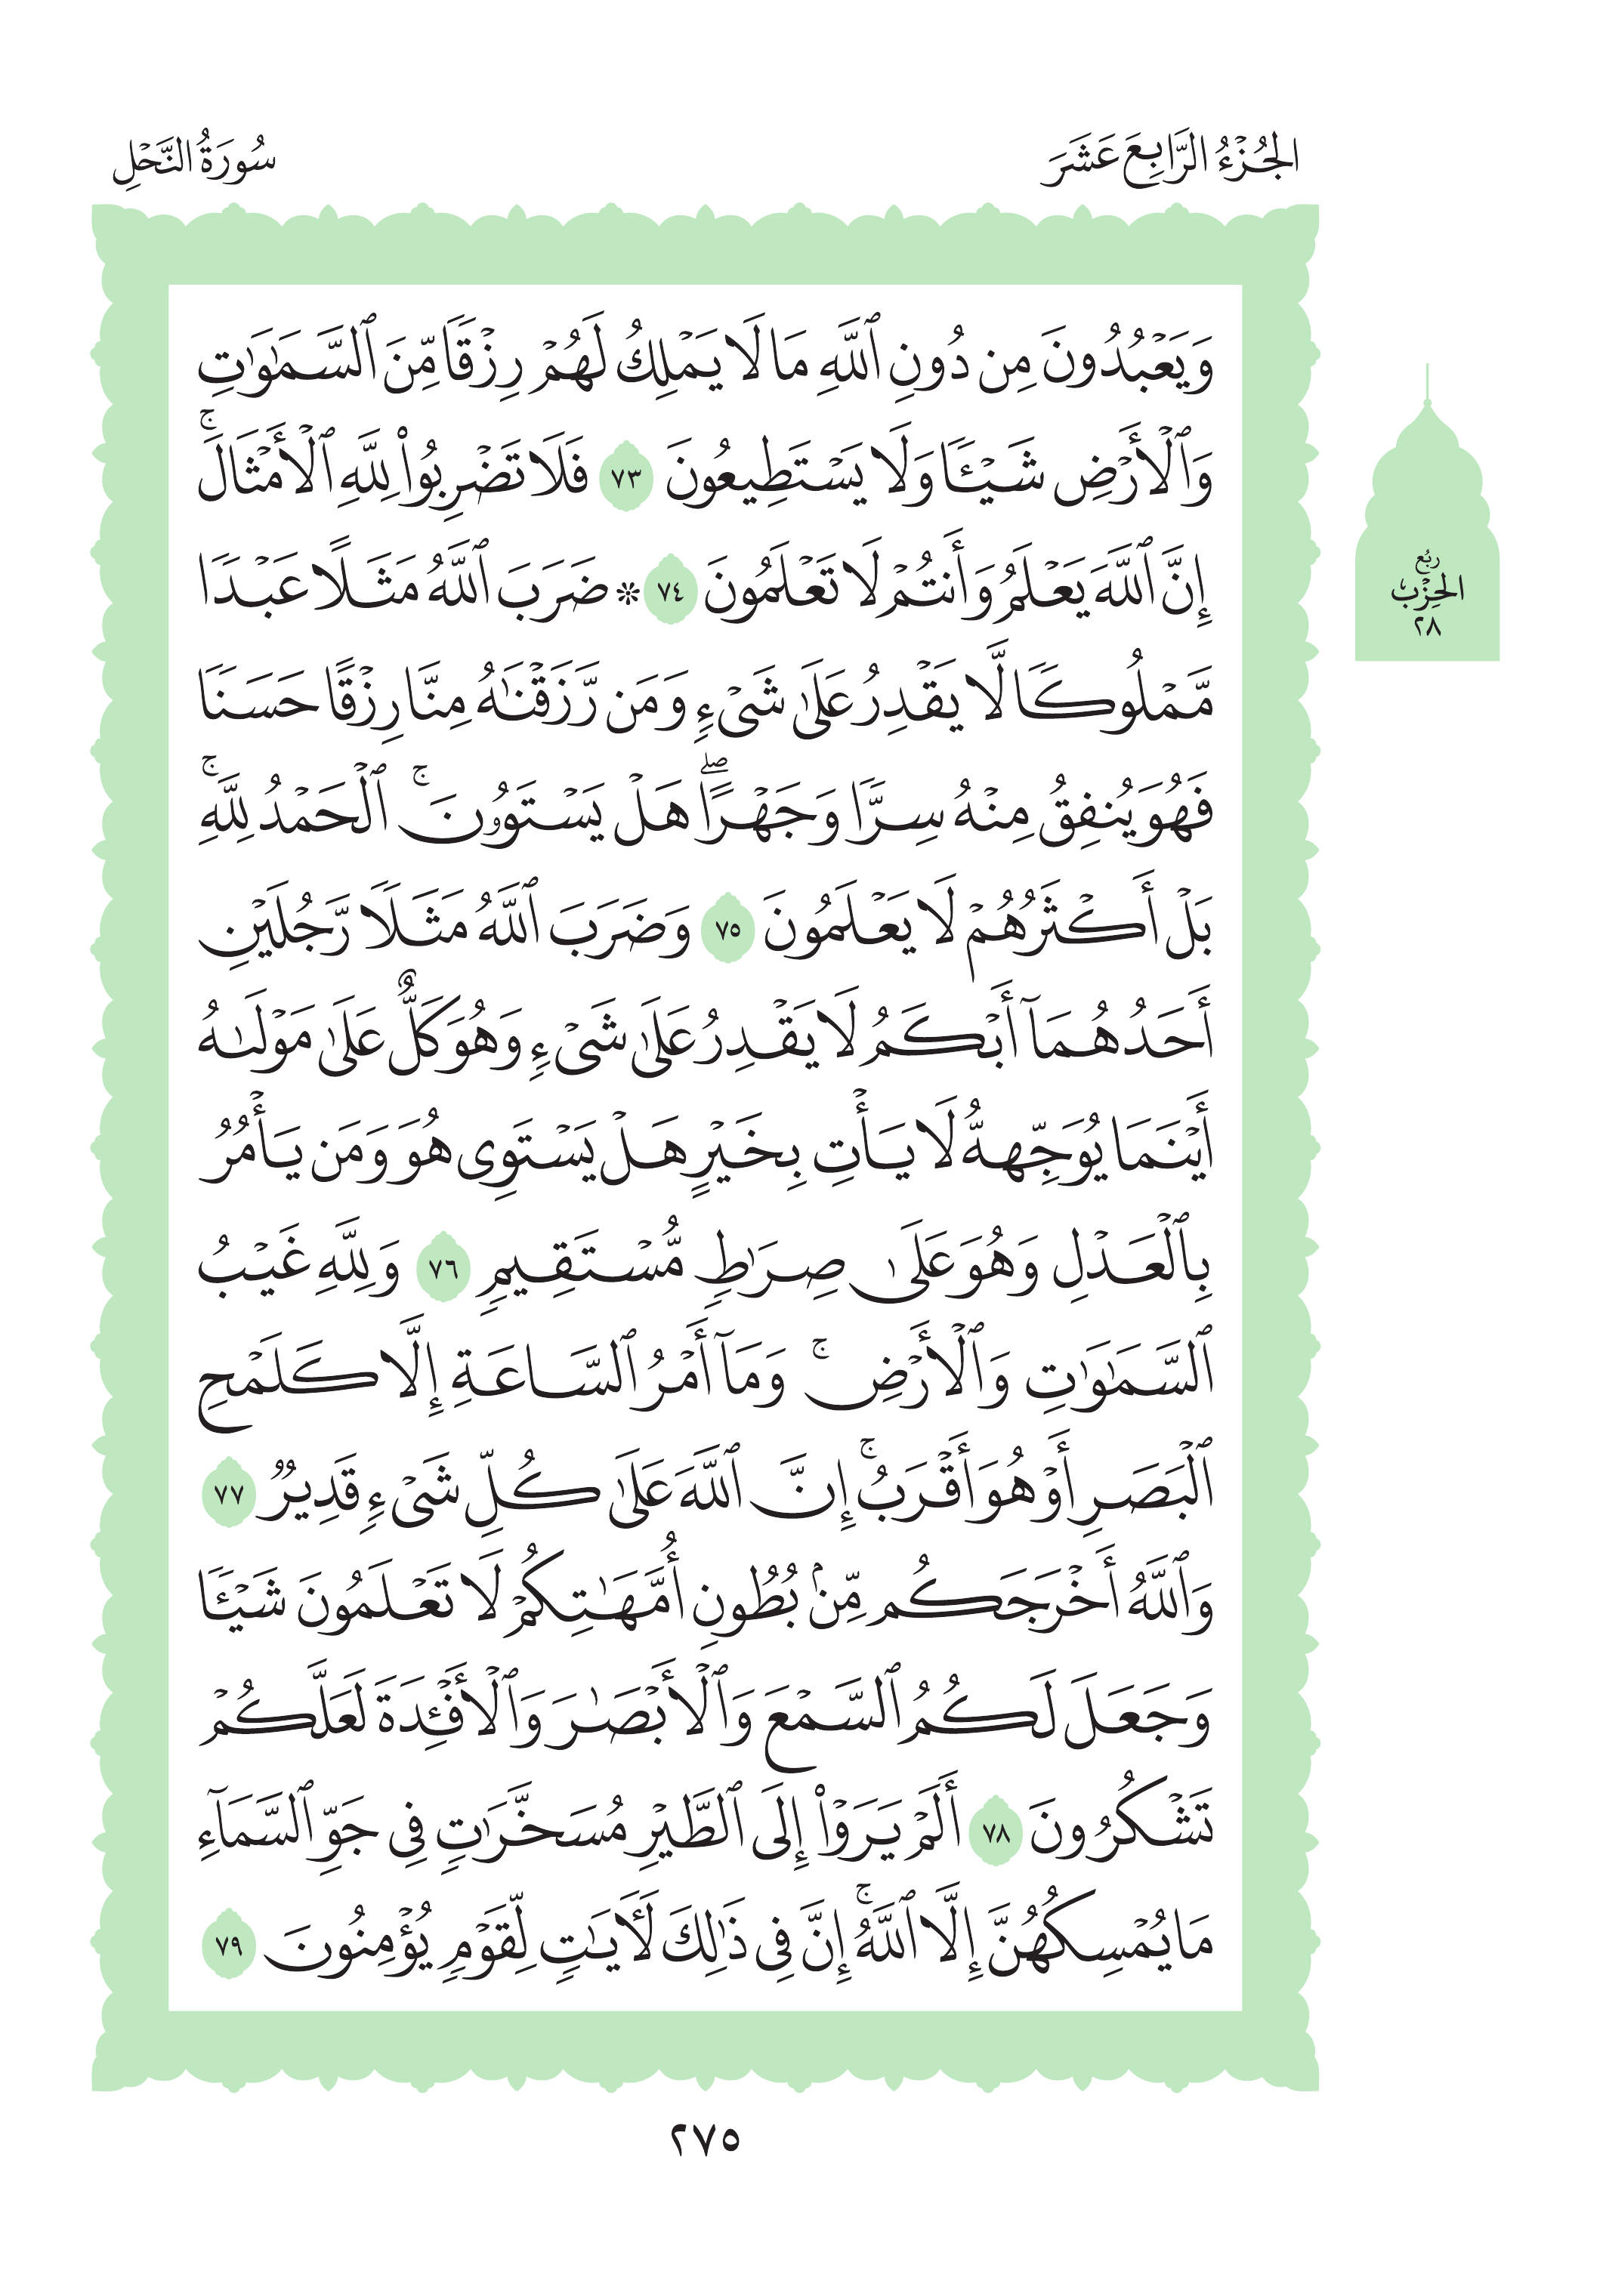 الجُزْءُ الرَّابِعَ عَشَرَ
سُورَةُ النَّحْلِ
وَيَعْبُدُونَ مِن دُونِ ٱللَّهِ مَا لَا يَمْلِكُ لَهُمْ رِزْقًا مِّنَ ٱلسَّمَٰوَٰتِ
وَٱلْأَرْضِ شَيْـًٔا وَلَا يَسْتَطِيعُونَ ٧٣ فَلَا تَضْرِبُوا۟ لِلَّهِ ٱلْأَمْثَالَ ۚ
إِنَّ ٱللَّهَ يَعْلَمُ وَأَنتُمْ لَا تَعْلَمُونَ ٧٤ ۞ ضَرَبَ ٱللَّهُ مَثَلًا عَبْدًا
مَّمْلُوكًا لَّا يَقْدِرُ عَلَىٰ شَىْءٍ وَمَن رَّزَقْنَٰهُ مِنَّا رِزْقًا حَسَنًا
فَهُوَ يُنفِقُ مِنْهُ سِرًّا وَجَهْرًا ۖ هَلْ يَسْتَوُۥنَ ۚ ٱلْحَمْدُ لِلَّهِ ۚ
بَلْ أَكْثَرُهُمْ لَا يَعْلَمُونَ ٧٥ وَضَرَبَ ٱللَّهُ مَثَلًا رَّجُلَيْنِ
أَحَدُهُمَآ أَبْكَمُ لَا يَقْدِرُ عَلَىٰ شَىْءٍ وَهُوَ كَلٌّ عَلَىٰ مَوْلَىٰهُ
أَيْنَمَا يُوَجِّههُّ لَا يَأْتِ بِخَيْرٍ هَلْ يَسْتَوِى هُوَ وَمَن يَأْمُرُ
بِٱلْعَدْلِ وَهُوَ عَلَىٰ صِرَٰطٍ مُّسْتَقِيمٍ ٧٦ وَلِلَّهِ غَيْبُ
ٱلسَّمَٰوَٰتِ وَٱلْأَرْضِ ۚ وَمَآ أَمْرُ ٱلسَّاعَةِ إِلَّا كَلَمْحِ
ٱلْبَصَرِ أَوْ هُوَ أَقْرَبُ ۚ إِنَّ ٱللَّهَ عَلَىٰ كُلِّ شَىْءٍ قَدِيرٌ ٧٧
وَٱللَّهُ أَخْرَجَكُم مِّنۢ بُطُونِ أُمَّهَٰتِكُمْ لَا تَعْلَمُونَ شَيْـًٔا
وَجَعَلَ لَكُمُ ٱلسَّمْعَ وَٱلْأَبْصَٰرَ وَٱلْأَفْـِٔدَةَ لَعَلَّكُمْ
تَشْكُرُونَ ٧٨ أَلَمْ يَرَوْا۟ إِلَى ٱلطَّيْرِ مُسَخَّرَٰتٍ فِى جَوِّ ٱلسَّمَآءِ
مَا يُمْسِكُهُنَّ إِلَّا ٱللَّهُ ۚ إِنَّ فِى ذَٰلِكَ لَـَٔايَٰتٍ لِّقَوْمٍ يُؤْمِنُونَ ٧٩
رُبْع
الحِزْب
٢٨
٢٧٥